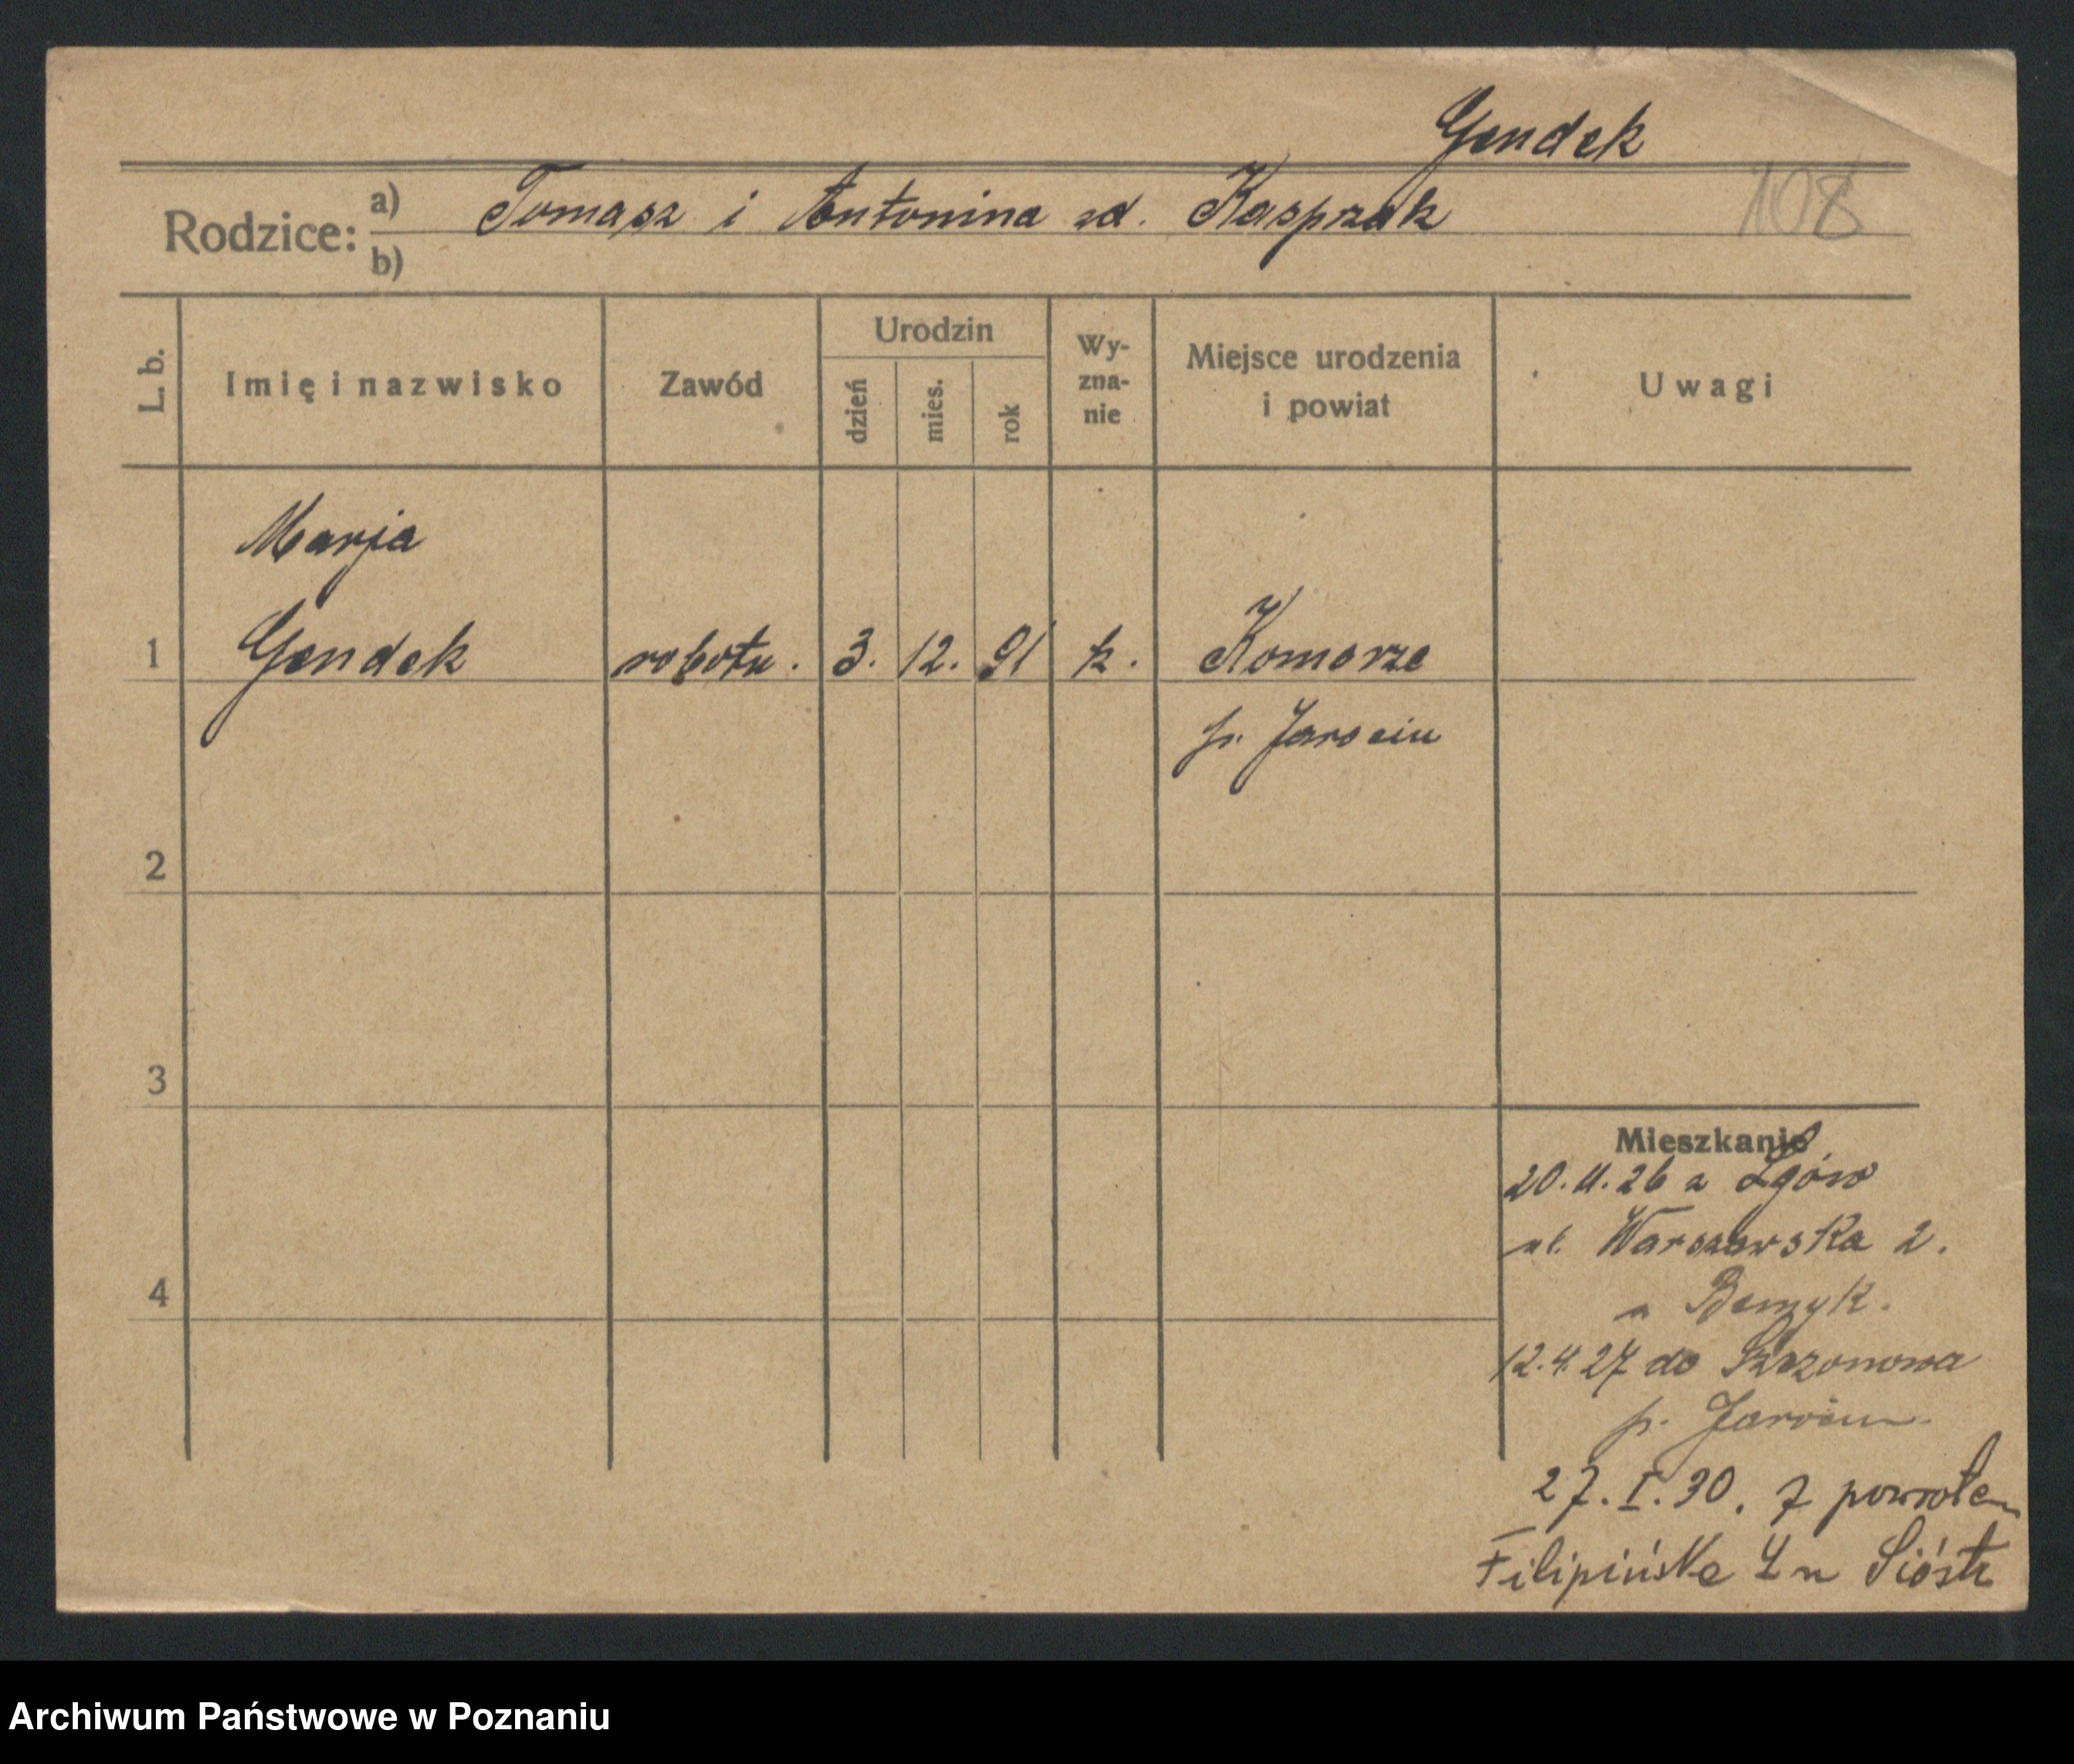 Gendek
108
Rodzice: a) Tomasz i Antonina zd. Kasprzak
b)
L. b. Imię i nazwisko Zawód Urodzin dzień mies. rok Wyznanie Miejsce urodzenia i powiat Uwagi
Marja
1 Gendek robotn. 3. 12. 91 k. Komorze
p. Jarocin
2
3
4
Mieszkanie
20.11.26 z Lgów
ul. Warszawska 2.
u
12.4.27 do
p. Jarocin.
27.I.30. z powrotem
Filipińska 4 u Sióstr
Archiwum Państwowe w Poznaniu